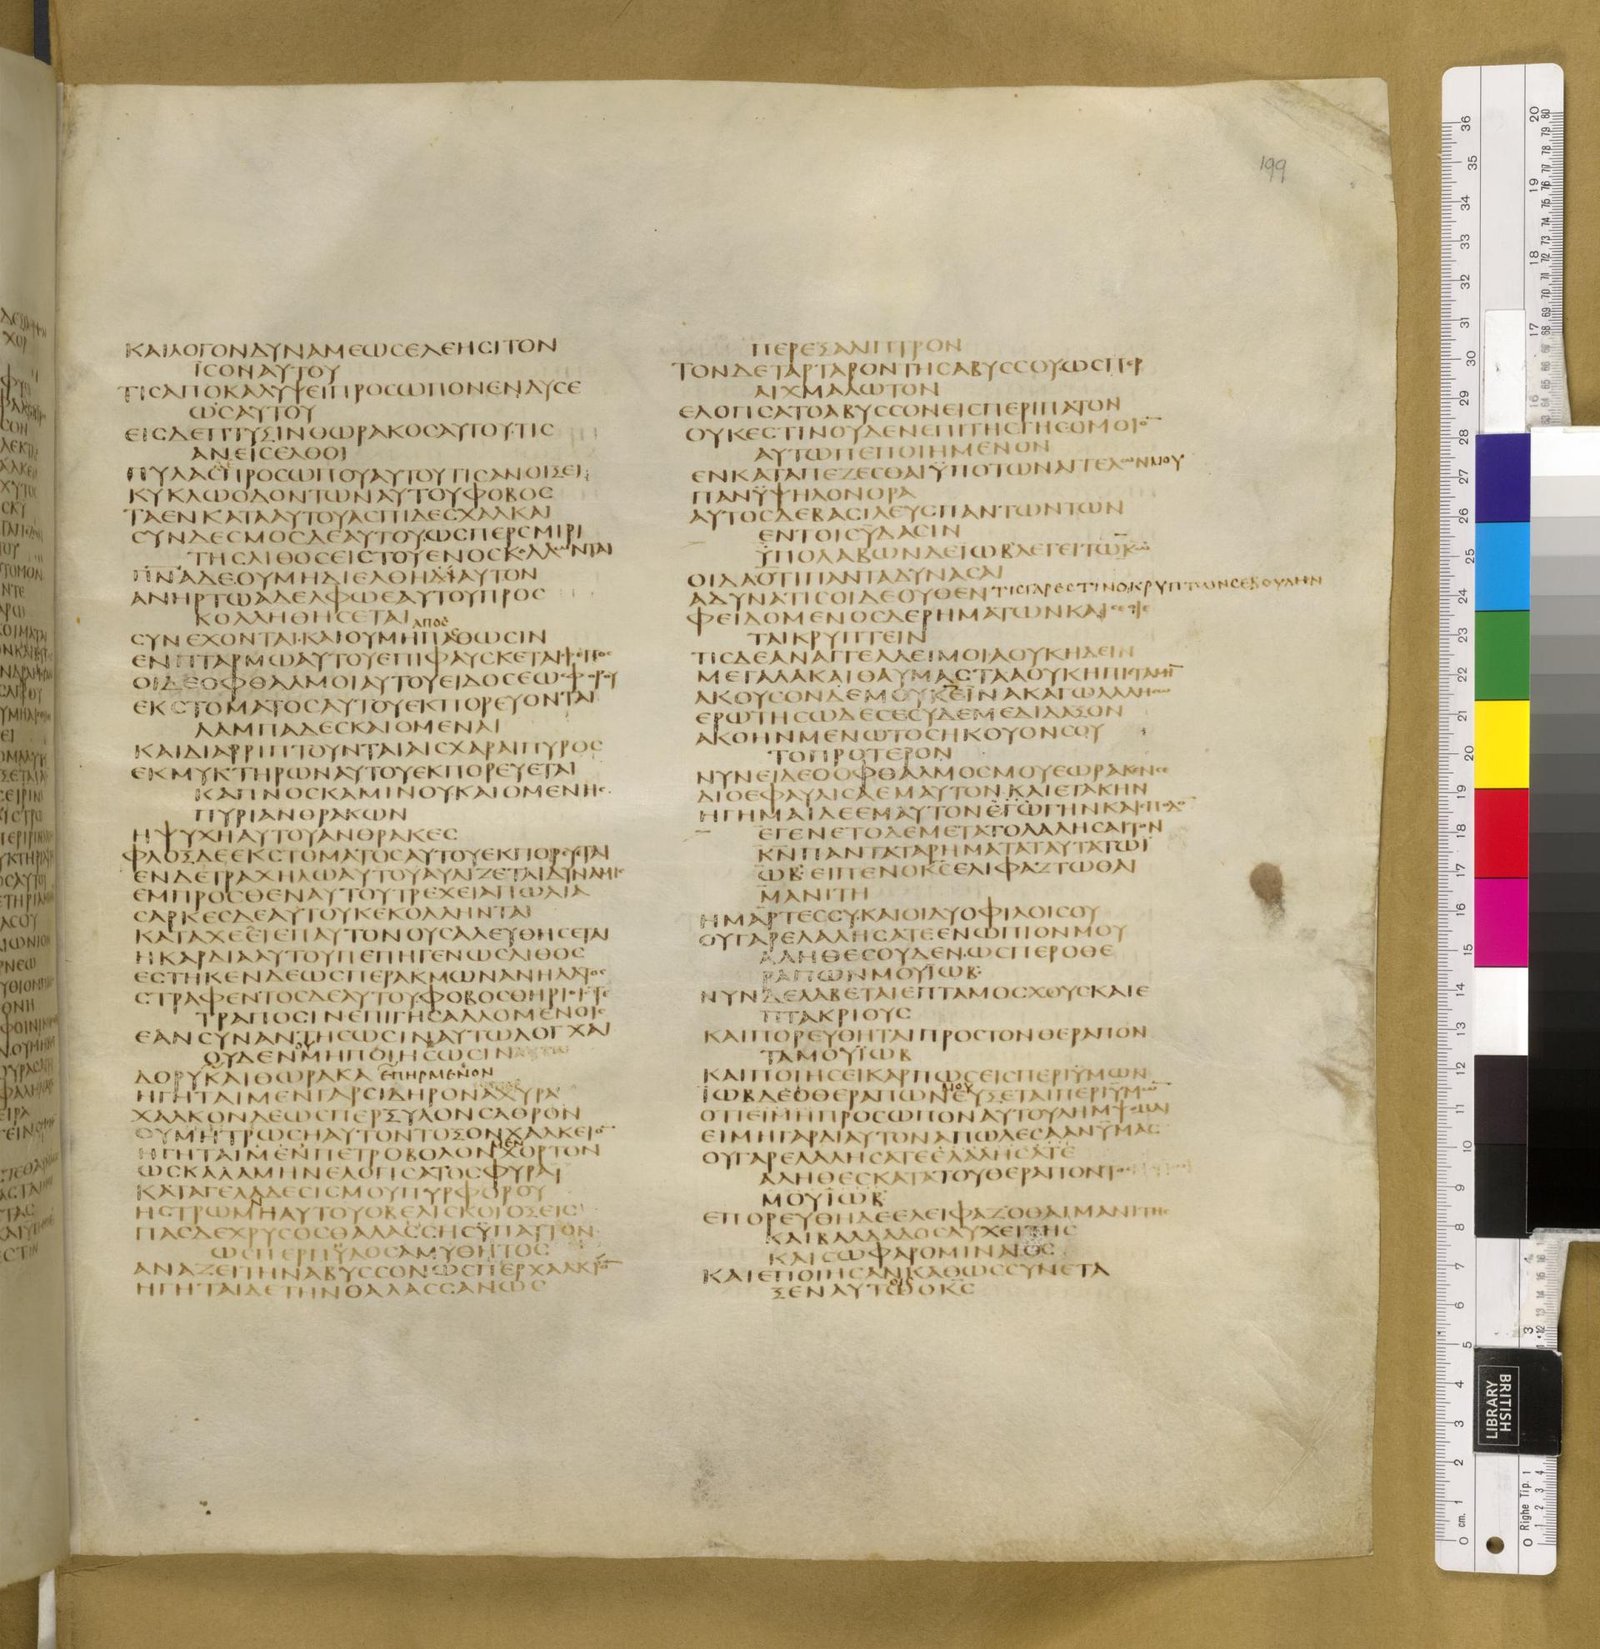 ΚΑΙΛΟΓΟΝΔΥΝΑΜΕΩΣΕΛΕΗΣΙΤΟΝ
ΪΣΟΝΑΥΤΟΥ
ΤΙΣΑΠΟΚΑΛΥΨΕΙΠΡΟΣΩΠΟΝΕΝΔΥΣΕ
ΩΣΑΥΤΟΥ
ΕΙΣΔΕΠΤΥΞΙΝΘΩΡΑΚΟΣΑΥΤΟΥΤΙΣ
ΑΝΕΙΣΕΛΘΟΙ
ΠΥΛΑΣΠΡΟΣΩΠΟΥΑΥΤΟΥΤΙΣΑΝΟΙΞΕΙ
ΚΥΚΛΩΟΔΟΝΤΩΝΑΥΤΟΥΦΟΒΟΣ
ΤΑΕΝΚΑΤΑΑΥΤΟΥΑΣΠΙΔΕΣΧΑΛΚΑΙ
ΣΥΝΔΕΣΜΟΣΔΕΑΥΤΟΥΩΣΠΕΡΣΜΙΡΙ
ΤΗΣΛΙΘΟΣΕΙΣΤΟΥΕΝΟΣΚΟΛΛΩΝΤΑΙ
ΠΝΑΔΕΟΥΜΗΔΙΕΛΘΗΑΥΤΟΝ
ΑΝΗΡΤΩΑΔΕΛΦΩΕΑΥΤΟΥΠΡΟΣ
ΚΟΛΛΗΘΗΣΕΤΑΙ
ΣΥΝΕΧΟΝΤΑΙΚΑΙΟΥΜΗΑΠΟΣΠΑΘΩΣΙΝ
ΕΝΠΤΑΡΜΩΑΥΤΟΥΕΠΙΦΑΥΣΚΕΤΑΙΦΕΓΓΟΣ
ΟΙΔΕΟΦΘΑΛΜΟΙΑΥΤΟΥΕΙΔΟΣΕΩΣΦΟΡΟΥ
ΕΚΣΤΟΜΑΤΟΣΑΥΤΟΥΕΚΠΟΡΕΥΟΝΤΑΙ
ΛΑΜΠΑΔΕΣΚΑΙΟΜΕΝΑΙ
ΚΑΙΔΙΑΡΡΙΠΤΟΥΝΤΑΙΑΙΣΧΑΡΑΙΠΥΡΟΣ
ΕΚΜΥΚΤΗΡΩΝΑΥΤΟΥΕΚΠΟΡΕΥΕΤΑΙ
ΚΑΠΝΟΣΚΑΜΙΝΟΥΚΑΙΟΜΕΝΗΣ
ΠΥΡΙΑΝΘΡΑΚΩΝ
ΗΨΥΧΗΑΥΤΟΥΑΝΘΡΑΚΕΣ
ΦΛΟΞΔΕΕΚΣΤΟΜΑΤΟΣΑΥΤΟΥΕΚΠΟΡΕΥΕΤΑΙ
ΕΝΔΕΤΡΑΧΗΛΩΑΥΤΟΥΑΥΛΙΖΕΤΑΙΔΥΝΑΜΙΣ
ΕΜΠΡΟΣΘΕΝΑΥΤΟΥΤΡΕΧΕΙΑΠΩΛΙΑ
ΣΑΡΚΕΣΔΕΑΥΤΟΥΚΕΚΟΛΛΗΝΤΑΙ
ΚΑΤΑΧΕΕΙΕΠΑΥΤΟΝΟΥΣΑΛΕΥΘΗΣΕΤΑΙ
ΗΚΑΡΔΙΑΑΥΤΟΥΠΕΠΗΓΕΝΩΣΛΙΘΟΣ
ΕΣΤΗΚΕΝΔΕΩΣΠΕΡΑΚΜΩΝΑΝΗΛΑΤΟΣ
ΣΤΡΑΦΕΝΤΟΣΔΕΑΥΤΟΥΦΟΒΟΣΘΗΡΙΟΙΣΤΕ
ΤΡΑΠΟΣΙΝΕΠΙΓΗΣΑΛΛΟΜΕΝΟΙΣ
ΕΑΝΣΥΝΑΝΤΗΣΩΣΙΝΑΥΤΩΛΟΓΧΑΙ
ΟΥΔΕΝΜΗΠΟΙΗΣΩΣΙΝ
ΔΟΡΥΚΑΙΘΩΡΑΚΑ ΕΠΗΡΜΕΝΟΝ
ΗΓΗΤΑΙΜΕΝΓΑΡΣΙΔΗΡΟΝΑΧΥΡΑ
ΧΑΛΚΟΝΔΕΩΣΠΕΡΞΥΛΟΝΣΑΘΡΟΝ
ΟΥΜΗΤΡΩΣΗΑΥΤΟΝΤΟΞΟΝΧΑΛΚΕΙΟΝ
ΗΓΗΤΑΙΜΕΝΠΕΤΡΟΒΟΛΟΝΧΟΡΤΟΝ
ΩΣΚΑΛΑΜΗΝΕΛΟΓΙΣΑΤΟΣΦΥΡΑΙ
ΚΑΤΑΓΕΛΑΔΕΣΙΣΜΟΥΠΥΡΦΟΡΟΥ
ΗΣΤΡΩΜΝΗΑΥΤΟΥΟΒΕΛΙΣΚΟΙΟΞΕΙΣ
ΠΑΣΔΕΧΡΥΣΟΣΘΑΛΑΣΣΗΣΫΠΑΥΤΟΝ
ΩΣΠΕΡΠΥΛΟΣΑΜΥΘΗΤΟΣ
ΑΝΑΖΕΙΤΗΝΑΒΥΣΣΟΝΩΣΠΕΡΧΑΛΚΙΟΝ
ΗΓΗΤΑΙΔΕΤΗΝΘΑΛΑΣΣΑΝΩΣ
ΠΕΡΕΞΑΛΙΠΤΡΟΝ
ΤΟΝΔΕΤΑΡΤΑΡΟΝΤΗΣΑΒΥΣΣΟΥΩΣΠΕΡ
ΑΙΧΜΑΛΩΤΟΝ
ΕΛΟΓΙΣΑΤΟΑΒΥΣΣΟΝΕΙΣΠΕΡΙΠΑΤΟΝ
ΟΥΚΕΣΤΙΝΟΥΔΕΝΕΠΙΤΗΣΓΗΣΟΜΟΙΟΝ
ΑΥΤΩΠΕΠΟΙΗΜΕΝΟΝ
ΕΝΚΑΤΑΠΕΖΕΣΘΑΙΫΠΟΤΩΝΑΓΓΕΛΩΝΜΟΥ
ΠΑΝΫΨΗΛΟΝΟΡΑ
ΑΥΤΟΣΔΕΒΑΣΙΛΕΥΣΠΑΝΤΩΝΤΩΝ
ΕΝΤΟΙΣΫΔΑΣΙΝ
ΫΠΟΛΑΒΩΝΔΕΪΩΒΛΕΓΕΙΤΩΚΩ
ΟΙΔΑΟΤΙΠΑΝΤΑΔΥΝΑΣΑΙ
ΑΔΥΝΑΤΙΣΟΙΔΕΟΥΘΕΝΤΙΣΓΑΡΕΣΤΙΝΟΚΡΥΠΤΩΝΣΕΒΟΥΛΗΝ
ΦΕΙΔΟΜΕΝΟΣΔΕΡΗΜΑΤΩΝΚΑΙΣΕΟΙΕ
ΤΑΙΚΡΥΠΤΕΙΝ
ΤΙΣΔΕΑΝΑΓΓΕΛΛΕΙΜΟΙΑΟΥΚΗΔΕΙΝ
ΜΕΓΑΛΑΚΑΙΘΑΥΜΑΣΤΑΑΟΥΚΗΠΙΣΤΑΜΗΝ
ΑΚΟΥΣΟΝΔΕΜΟΥΚΕΙΝΑΚΑΓΩΛΑΛΗΣΩ
ΕΡΩΤΗΣΩΔΕΣΕΣΥΔΕΜΕΔΙΔΑΞΟΝ
ΑΚΟΗΝΜΕΝΩΤΟΣΗΚΟΥΟΝΣΟΥ
ΤΟΠΡΟΤΕΡΟΝ
ΝΥΝΕΙΔΕΟΟΦΘΑΛΜΟΣΜΟΥΕΩΡΑΚΕΝΣΕ
ΔΙΟΕΦΑΥΛΙΣΑΕΜΑΥΤΟΝΚΑΙΕΤΑΚΗΝ
ΗΓΗΜΑΙΔΕΕΜΑΥΤΟΝΕΓΩΓΗΝΚΑΙΣΠΟΔΟΝ
ΕΓΕΝΕΤΟΔΕΜΕΤΑΤΟΛΑΛΗΣΑΙΤΟΝ
ΚΝΠΑΝΤΑΤΑΡΗΜΑΤΑΤΑΥΤΑΤΩΙ
ΩΒΕΙΠΕΝΟΚΣΕΛΙΦΑΖΤΩΘΑΙ
ΜΑΝΙΤΗ
ΗΜΑΡΤΕΣΣΥΚΑΙΟΙΔΥΟΦΙΛΟΙΣΟΥ
ΟΥΓΑΡΕΛΑΛΗΣΑΤΕΕΝΩΠΙΟΝΜΟΥ
ΑΛΗΘΕΣΟΥΔΕΝΩΣΠΕΡΟΘΕ
ΡΑΠΩΝΜΟΥΪΩΒ
ΝΥΝΔΕΛΑΒΕΤΑΙΕΠΤΑΜΟΣΧΟΥΣΚΑΙΕ
ΠΤΑΚΡΙΟΥΣ
ΚΑΙΠΟΡΕΥΘΗΤΑΙΠΡΟΣΤΟΝΘΕΡΑΠΟΝ
ΤΑΜΟΥΪΩΒ
ΚΑΙΠΟΙΗΣΕΙΚΑΡΠΩΣΕΙΣΠΕΡΙΫΜΩΝ
ΪΩΒΔΕΟΘΕΡΑΠΩΝΜΟΥΕΥΞΕΤΑΙΠΕΡΙΫΜΩΝ
ΟΤΙΕΙΜΗΠΡΟΣΩΠΟΝΑΥΤΟΥΛΗΜΨΟΜΑΙ
ΕΙΜΗΓΑΡΔΙΑΥΤΟΝΑΠΩΛΕΣΑΑΝΫΜΑΣ
ΟΥΓΑΡΕΛΑΛΗΣΑΤΕΕΛΑΛΗΣΑΤΕ
ΑΛΗΘΕΣΚΑΤΑΤΟΥΘΕΡΑΠΟΝΤΟΣ
ΜΟΥΪΩΒ
ΕΠΟΡΕΥΘΗΔΕΕΛΕΙΦΑΖΟΘΑΙΜΑΝΙΤΗΣ
ΚΑΙΒΑΛΔΑΔΟΣΑΥΧΕΙΤΗΣ
ΚΑΙΣΩΦΑΡΟΜΙΝΑΙΟΣ
ΚΑΙΕΠΟΙΗΣΑΝΚΑΘΩΣΣΥΝΕΤΑ
ΞΕΝΑΥΤΟΙΣΟΚΣ
199
BRITISH
LIBRARY